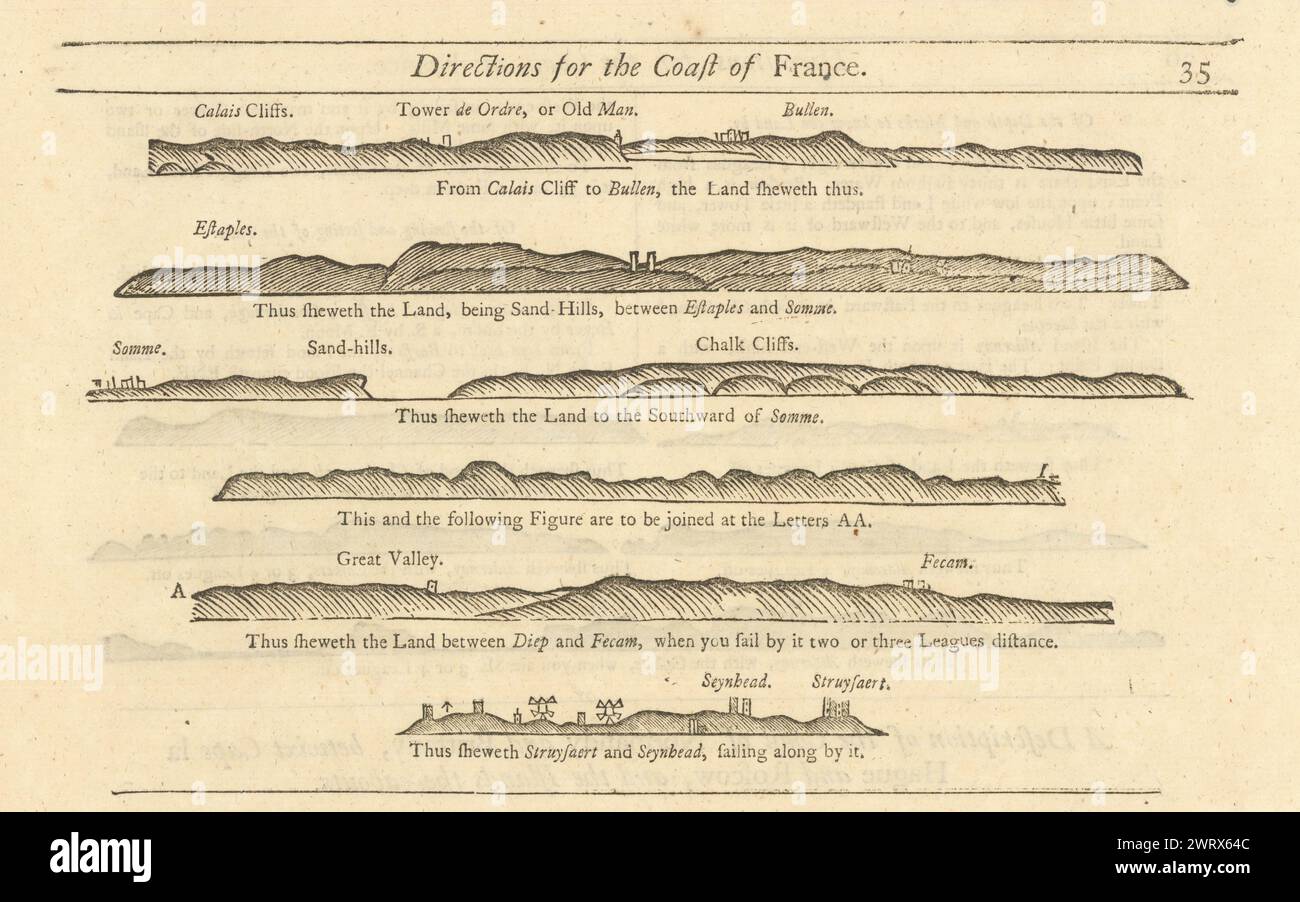 Directions for the Coaſt of France.
35
Calais Cliffs. Tower de Ordre, or Old Man. Bullen.
From Calais Cliff to Bullen, the Land ſheweth thus.
Eſtaples.
Thus ſheweth the Land, being Sand-Hills, between Eſtaples and Somme.
Somme. Sand-hills. Chalk Cliffs.
Thus ſheweth the Land to the Southward of Somme.
This and the following Figure are to be joined at the Letters AA.
Great Valley. Fecam.
A
Thus ſheweth the Land between Diep and Fecam, when you ſail by it two or three Leagues diſtance.
Seynhead. Struyſaert.
Thus ſheweth Struyſaert and Seynhead, ſailing along by it.
alamy
Image ID: 2WRX64C
www.alamy.com